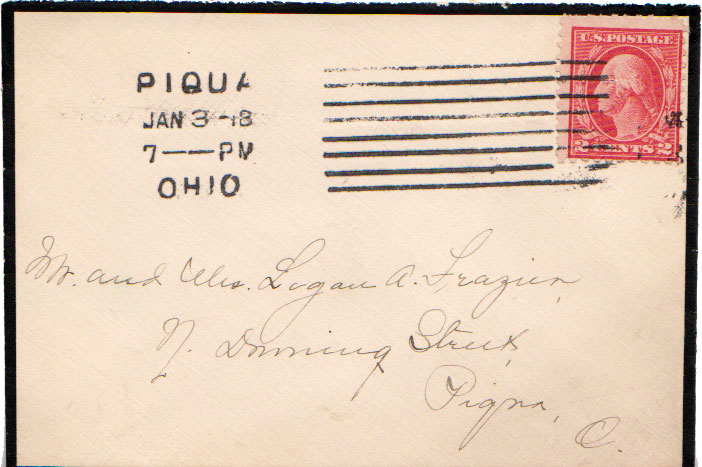 PIQUA
JAN 3-18
7——PM
OHIO
U.S. POSTAGE
2 CENTS 2
Mr. and Mrs. Logan A. Frazier,
N. Downing Street,
Piqua,
O.